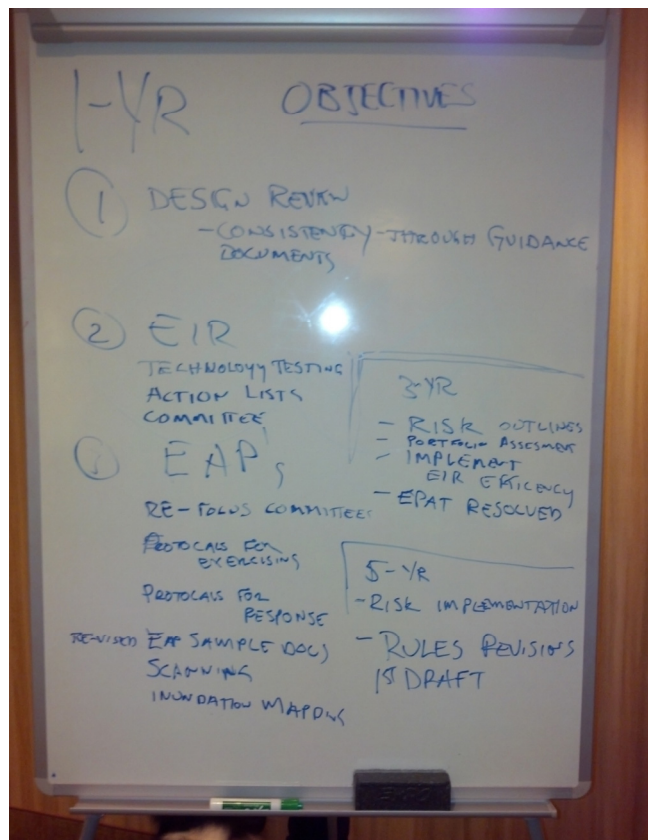 1-YR OBJECTIVES
1 DESIGN REVIEW
- CONSISTENCY - THROUGH GUIDANCE
DOCUMENTS
2 EIR
TECHNOLOGY TESTING
ACTION LISTS
COMMITTEE
EAPs
RE-FOCUS COMMITTEE
PROTOCALS FOR
EXERCISING
PROTOCALS FOR
RESPONSE
REVISED EAP SAMPLE DOCS
SCANNING
INUNDATION MAPPING
3-YR
- RISK OUTLINES
- PORTFOLIO ASSESMENT
- IMPLEMENT
EIR EFFICENCY
- EPAT RESOLVED
5-YR
- RISK IMPLEMENTATION
- RULES REVISIONS
1ST DRAFT
EXPO